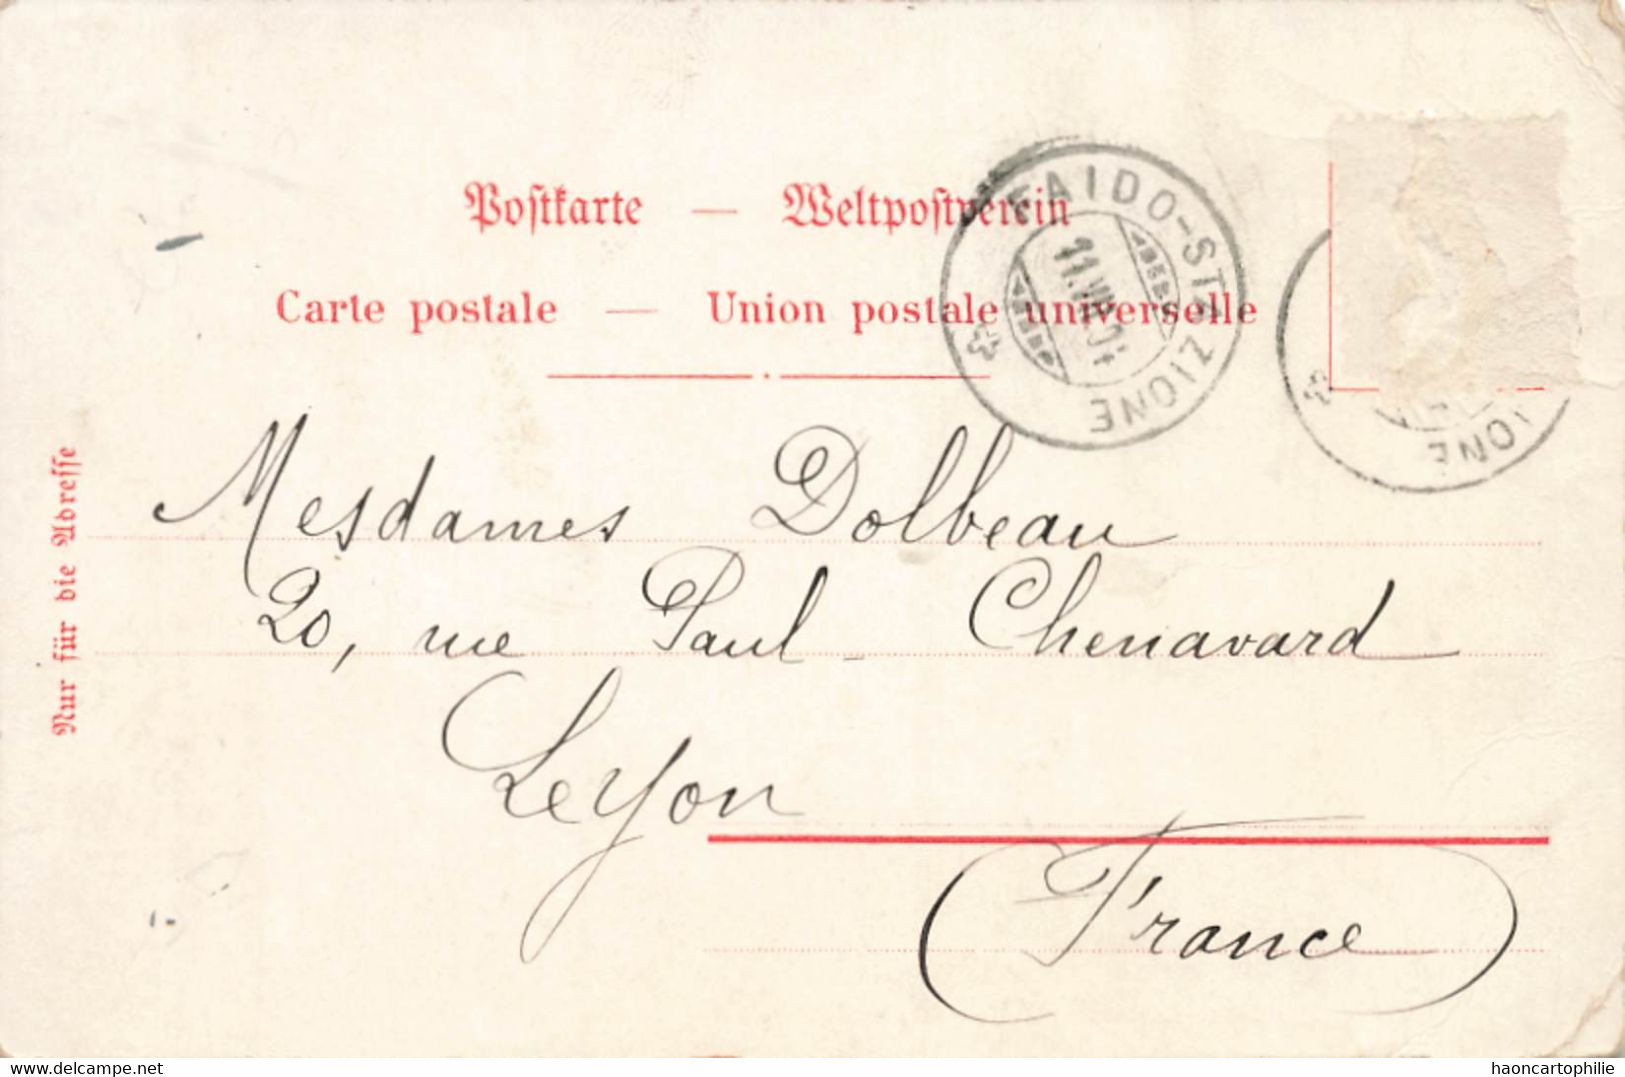 Postkarte — Weltpostverein
Carte postale — Union postale universelle
FAIDO-STAZIONE
Nur für die Adresse
Mesdames Dolbeau
20, rue Paul-Chenavard
Leyon
(France)
delcampe.net
haoncartophilie